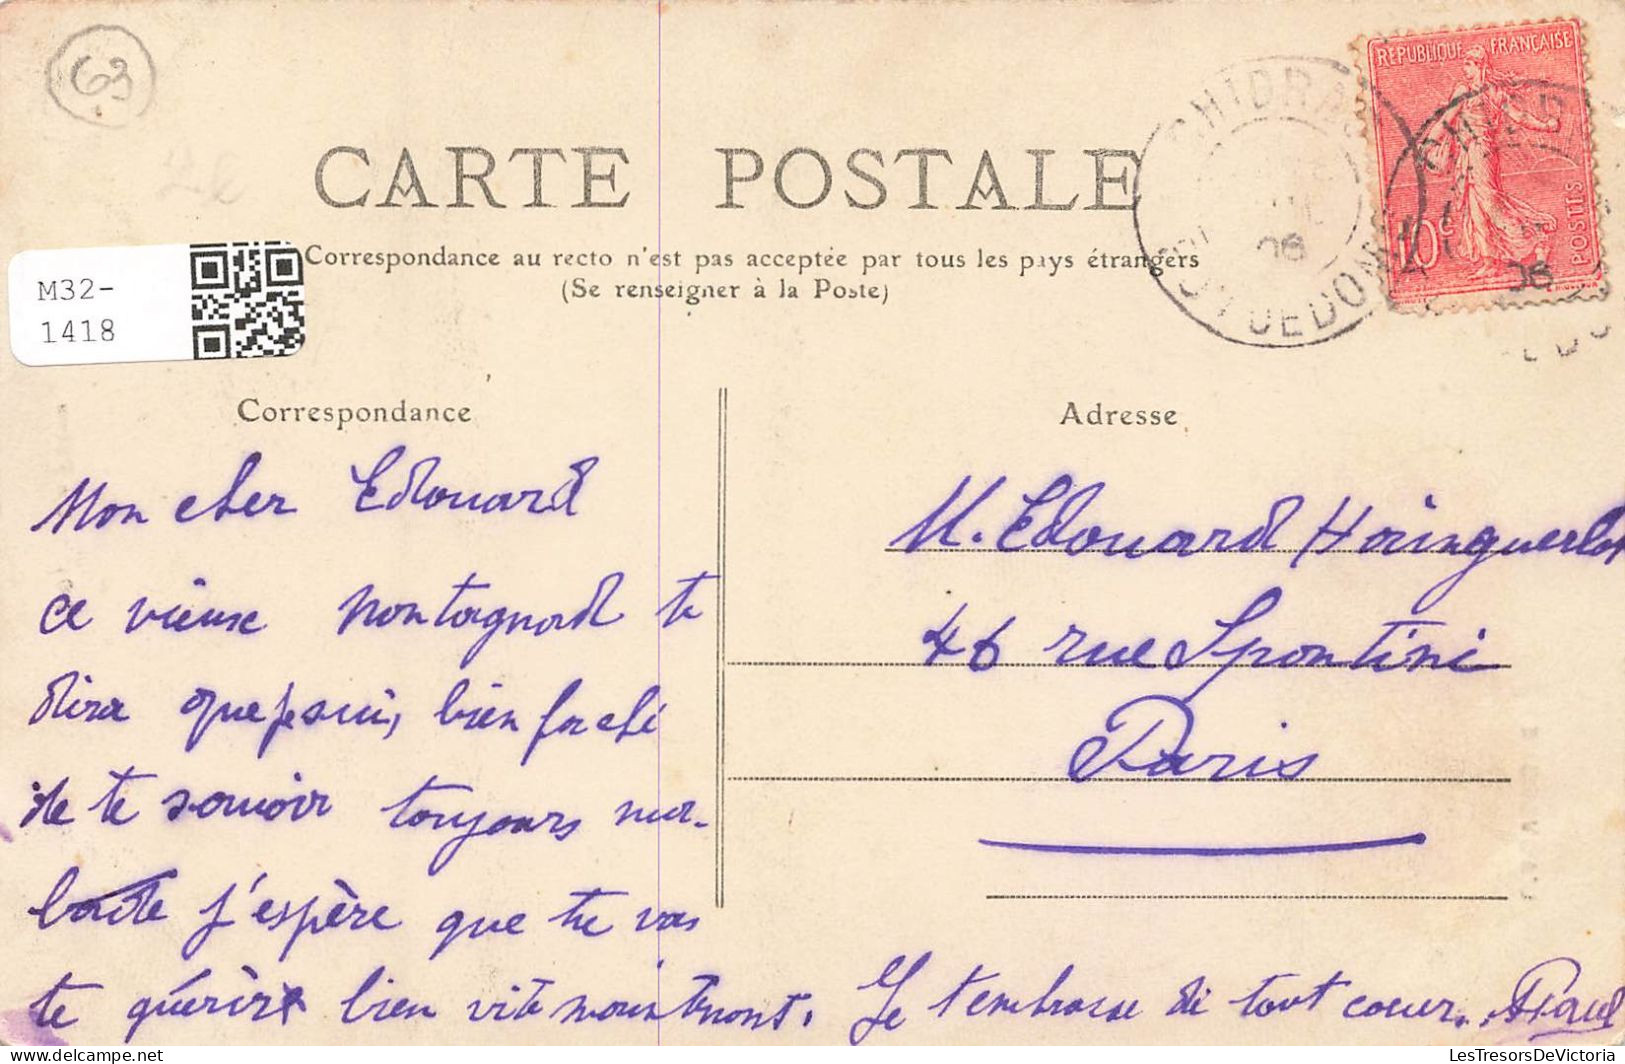 63
REPUBLIQUE FRANÇAISE
10c
POSTES
CARTE POSTALE
08
08
PUY DE DOME
M32-
1418
Correspondance au recto n'est pas acceptée par tous les pays étrangers
(Se renseigner à la Poste)
Correspondance
Mon cher Edouard
ce vieux montagnard te
dira que je suis bien faché
de te savoir toujours mal-
j'espère que tu vas
te guérir bien vite maintenant.
Je t'embrasse de tout coeur.
Adresse
M. Edouard Hainguerlot
46 rue Spontini
Paris
LesTresorsDeVictoria